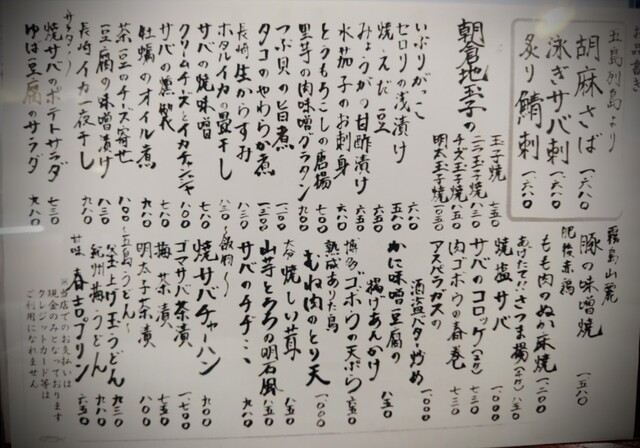 お品書き
五島列島より
胡麻さば 一、六八〇
泳ぎサバ刺 一、六八〇
炙り鯖刺 一、六八〇
朝倉地玉子の
玉子焼 七五〇
ニラ玉子焼 八三〇
チーズ玉子焼 八五〇
明太玉子焼 一、〇五〇
いぶりがっこ 六八〇
セロリの浅漬け
焼きえだ豆
みょうがの甘酢漬け
水茄子のお刺身
とうもろこしの唐揚
里芋の肉味噌グラタン 九〇〇
つぶ貝の旨煮
タコのやわらか煮
長崎 生からすみ
ホタルイカの畳干し
サバの焼味噌
クリームチーズとイカチャンジャ
サバの燻製
牡蠣のオイル煮
茶豆のチーズ寄せ
豆腐の味噌漬け
長崎 イカ一夜干し
サラダ〜
焼サバのポテトサラダ 七三〇
ゆば豆腐のサラダ 九八〇
霧島山麓
豚の味噌焼 一、五八〇
肥後赤鶏
もも肉のぬか床焼 一、二〇〇
あげたてさつま揚
焼塩サバ
サバのコロッケ
肉ゴボウの春巻 七三〇
アスパラガスの
酒盗バター炒め 一、〇〇〇
かに味噌豆腐の
揚げあんかけ 八五〇
博多ゴボウの天ぷら 六五〇
熟成ありた鳥
むね肉のとり天 一、〇〇〇
大分 焼しい茸 八五〇
山芋とろろの明石風 八八〇
サバのチヂミ 九八〇
〜飯物〜
焼サバチャーハン 九〇〇
ゴマサバ茶漬 一、七〇〇
梅茶漬 八〇〇
明太子茶漬 八〇〇
〜五島うどん〜
釜上げ玉うどん 九三〇
紀州梅うどん 九八〇
甘味 春吉プリン 六五〇
※当店でのお支払いは
現金のみとなっております
クレジットカード等は
ご利用になれません